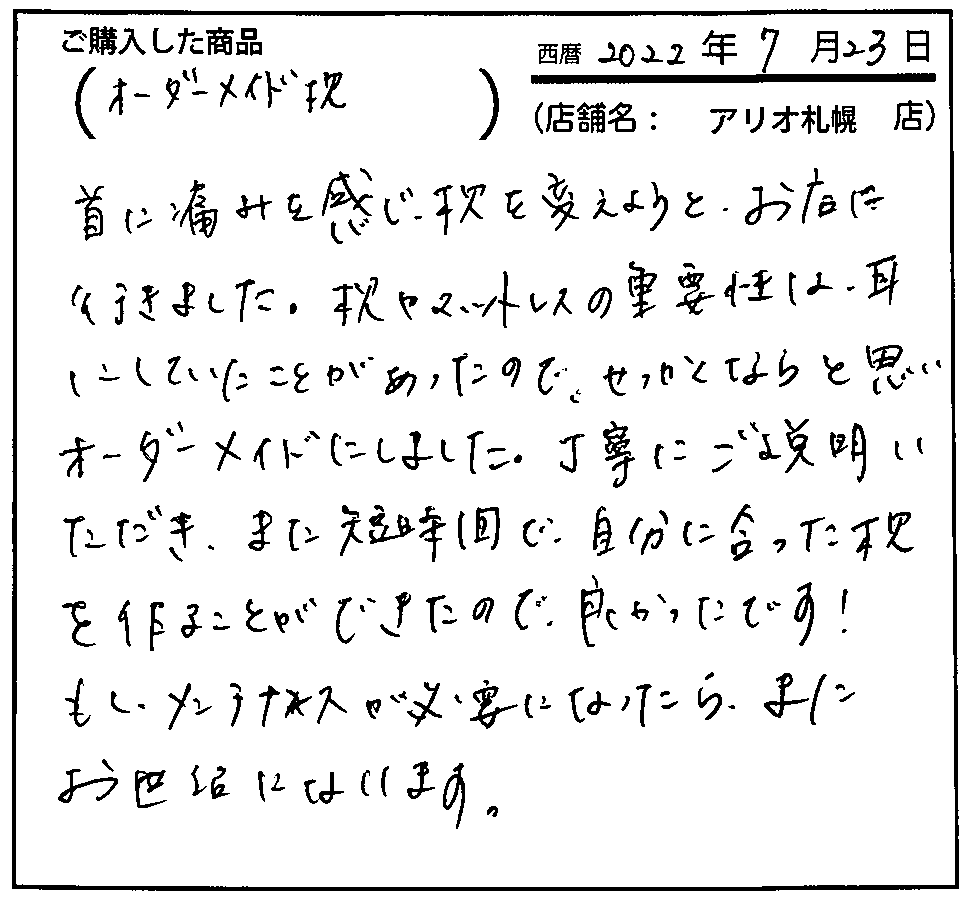 ご購入した商品
(オーダーメイド枕)
西暦 2022年 7月23日
(店舗名： アリオ札幌 店)
首に痛みを感じ、枕を変えようと、お店に
行きました。枕やマットレスの重要性は、耳
にしていたことがあったので、せっかくならと思い
オーダーメイドにしました。丁寧にご説明い
ただき、また短時間で、自分に合った枕
を作ることができたので、良かったです!
もし、メンテナンスが必要になったら、また
お世話になります。